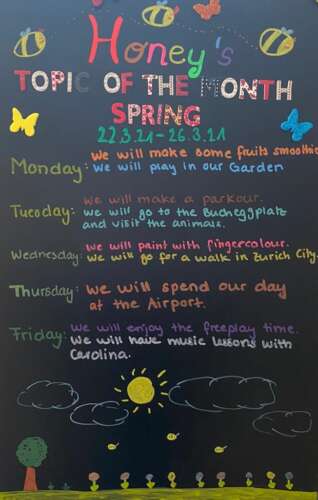 Honey's
TOPIC OF THE MONTH
SPRING
22.3.21-26.3.21
Monday: We will make some fruits smoothie
We will play in our Garden
Tuesday: We will make a parkour.
We will go to the Bucheggplatz
and visit the animals.
Wednesday: We will paint with fingercolour.
We will go for a walk in Zurich City.
Thursday: We will spend our day
at the Airport.
Friday: We will enjoy the freeplay time.
We will have music lessons with
Carolina.